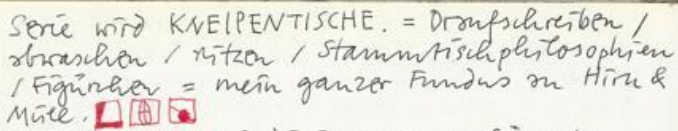 Serie wird KNEIPENTISCHE. = Draufschreiben /
abwaschen / ritzen / Stammtischphilosophien
/ Figürchen = mein ganzer Fundus an Hirn &
Müll.